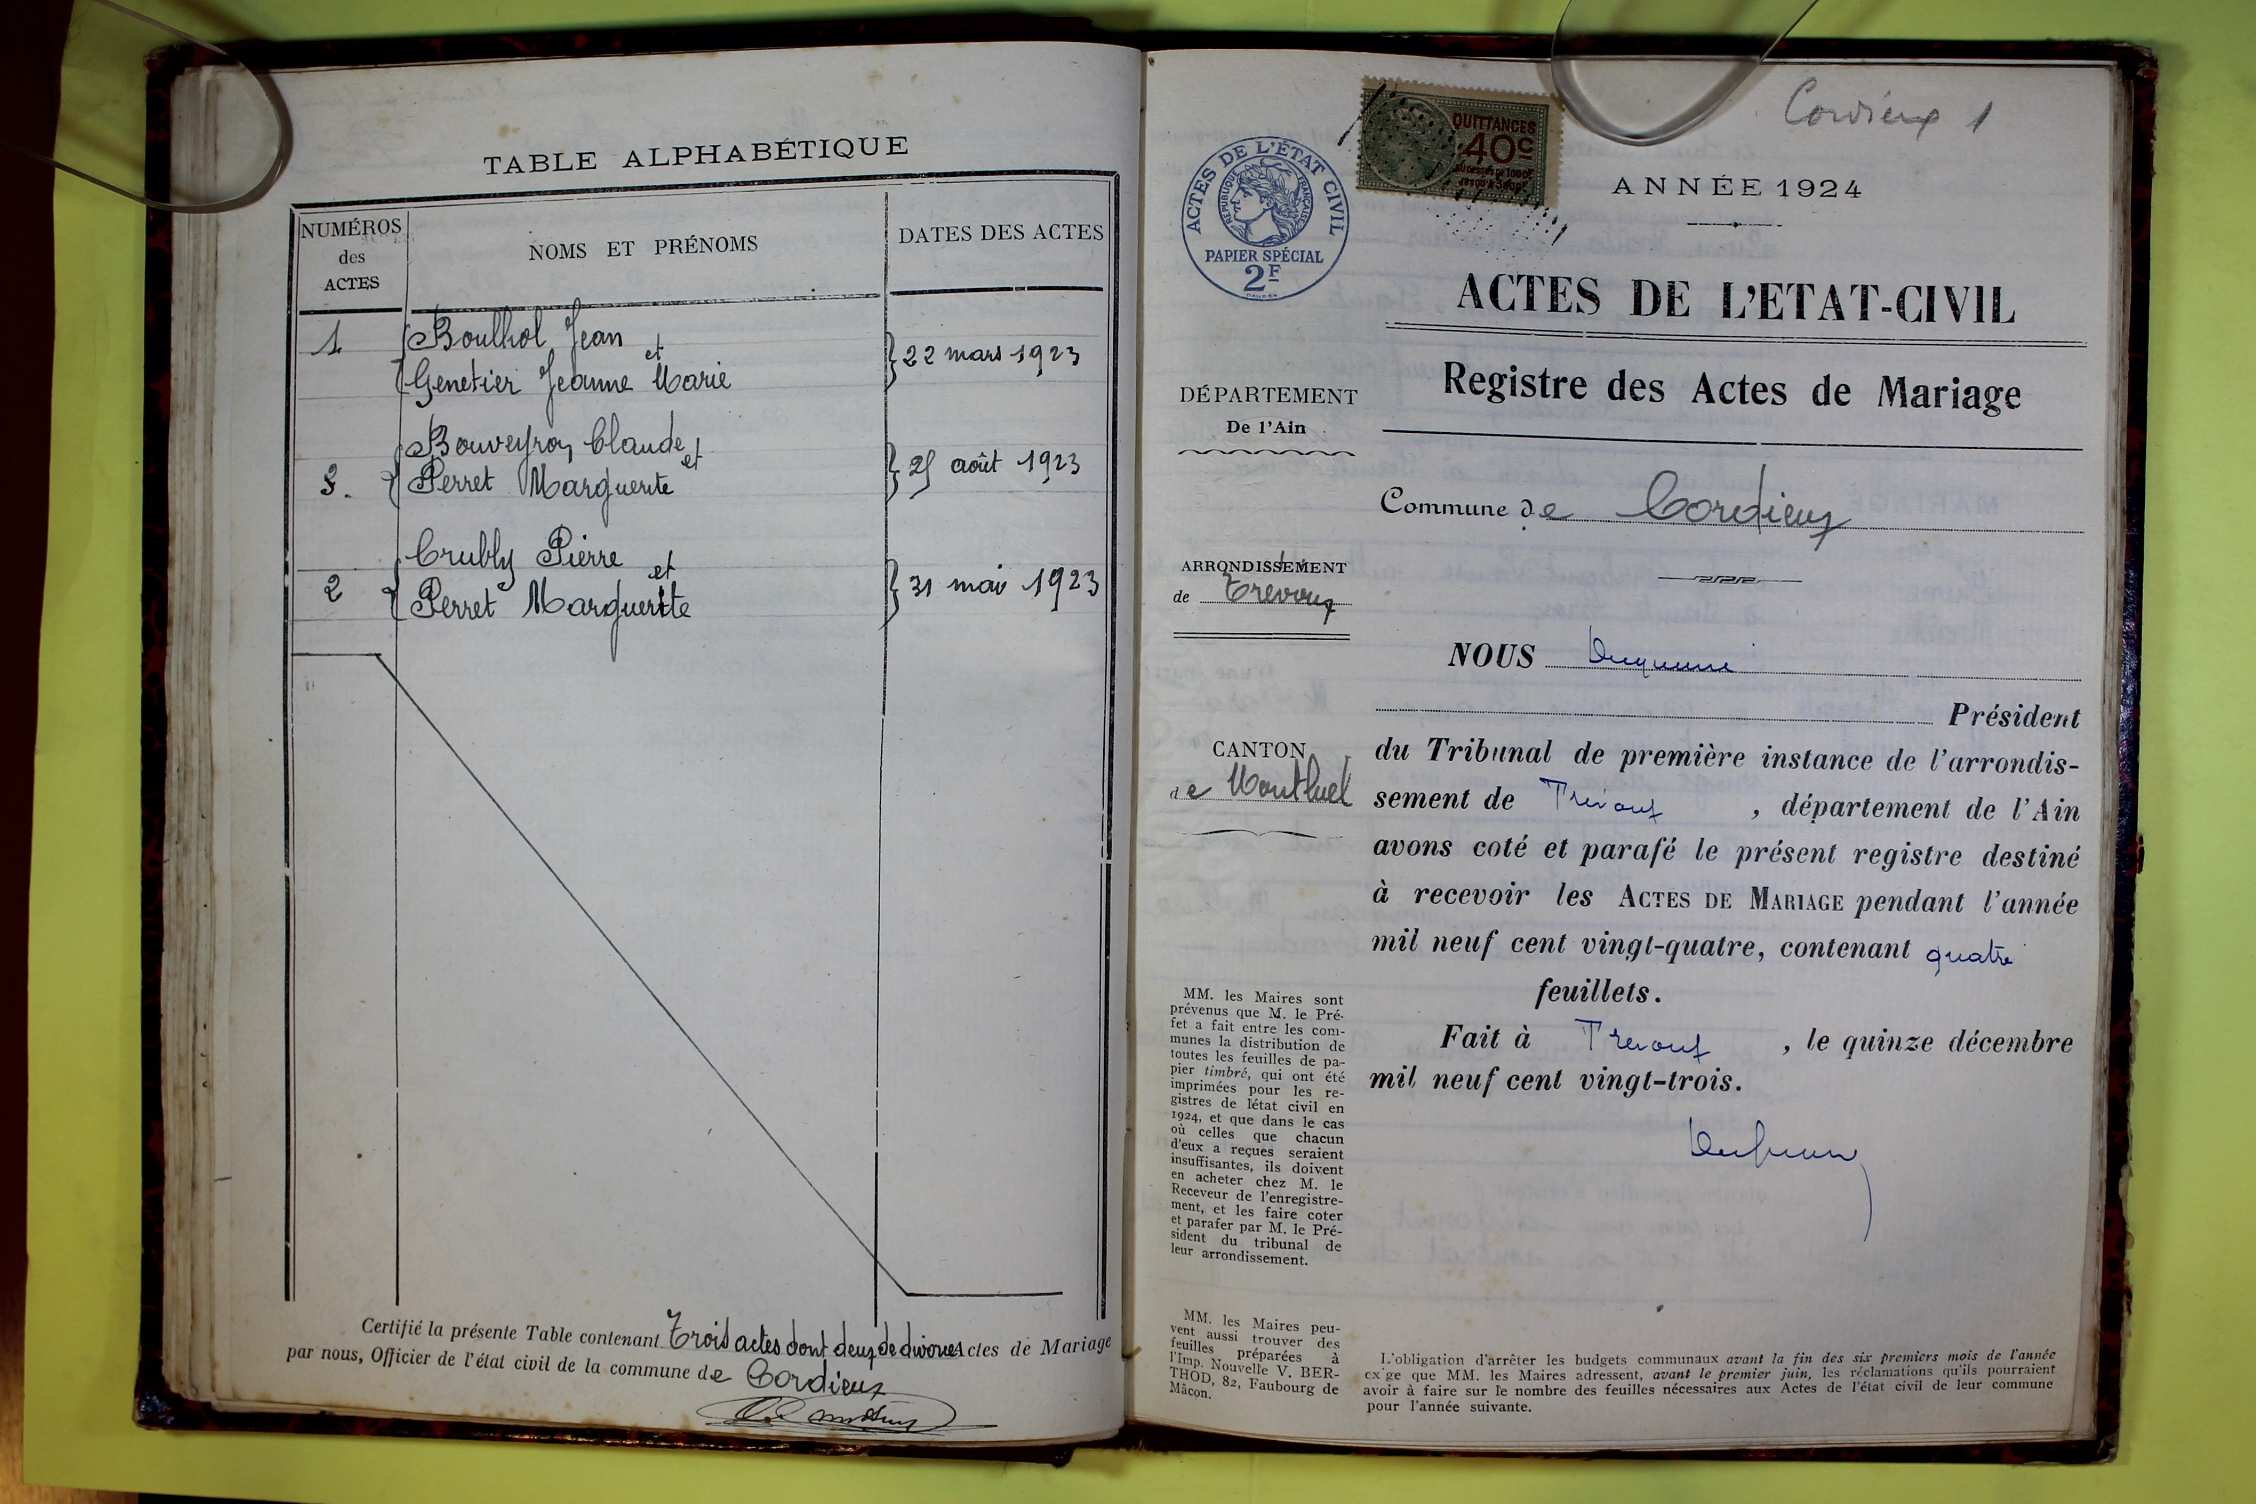 TABLE ALPHABÉTIQUE
NUMÉROS
des
ACTES
NOMS ET PRÉNOMS
DATES DES ACTES
Boulhol Jean
1
et
22 mars 1923
Genetier Jeanne Marie
Bouveyron Claude
et
3.
Perret Marguerite
25 août 1923
Crubly Pierre
et
2
Perret Marguerite
31 mai 1923
Certifié la présente Table contenant Trois actes dont deux de divorce Actes de Mariage
par nous, Officier de l'état civil de la commune de Cordieux
Cordieux 1
ACTES DE L'ÉTAT CIVIL
RÉPUBLIQUE FRANÇAISE
PAPIER SPÉCIAL
2F
QUITTANCES
40c
ANNÉE 1924
ACTES DE L'ETAT-CIVIL
Registre des Actes de Mariage
DÉPARTEMENT
De l'Ain
Commune de Cordieux
ARRONDISSEMENT
de Trévoux
NOUS
Président
du Tribunal de première instance de l'arrondis-
sement de Trévoux, département de l'Ain
avons coté et parafé le présent registre destiné
à recevoir les ACTES DE MARIAGE pendant l'année
mil neuf cent vingt-quatre, contenant quatre
feuillets.
Fait à Trévoux, le quinze décembre
mil neuf cent vingt-trois.
CANTON
de Montluel
MM. les Maires sont
prévenus que M. le Pré-
fet a fait entre les com-
munes la distribution de
toutes les feuilles de pa-
pier timbré, qui ont été
imprimées pour les re-
gistres de l'état civil en
1924, et que dans le cas
où celles que chacun
d'eux a reçues seraient
insuffisantes, ils doivent
en acheter chez M. le
Receveur de l'enregistre-
ment, et les faire coter
et parafer par M. le Pré-
sident du tribunal de
leur arrondissement.
MM. les Maires peu-
vent aussi trouver des
feuilles préparées à
l'Imp. Nouvelle V. BER-
THOD, 82, Faubourg de
Mâcon.
L'obligation d'arrêter les budgets communaux avant la fin des six premiers mois de l'année
ex ge que MM. les Maires adressent, avant le premier juin, les réclamations qu'ils pourraient
avoir à faire sur le nombre des feuilles nécessaires aux Actes de l'état civil de leur commune
pour l'année suivante.